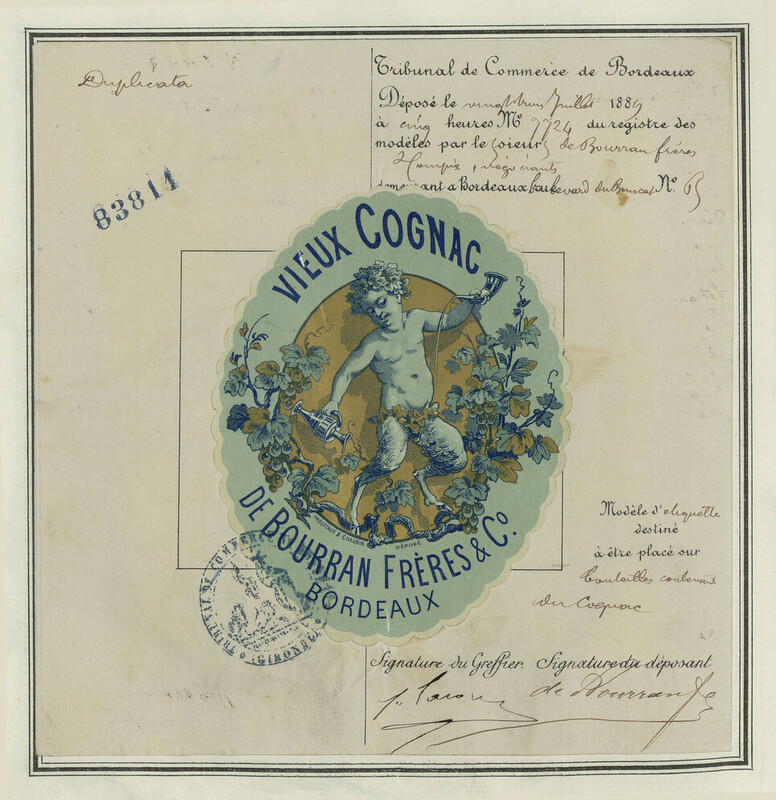 Duplicata
83814
Tribunal de Commerce de Bordeaux
Déposé le vingt trois Juillet 1889
à cinq heures No 7724 du registre des
modèles par le Soieurs de Bourran frères
négociants
demeurant a Bordeaux boulevard du Bouscat No.
VIEUX COGNAC
MOUTEAUX & CHAUBIN
DÉPOSÉ
DE BOURRAN FRÈRES & Co.
BORDEAUX
TRIBUNAL DE COMMERCE
(GIRONDE)
Modèle d'etiquette
destiné
à être placé sur
bouteilles contenant
du Cognac
Signature du Greffier. Signature du déposant
de Bourran